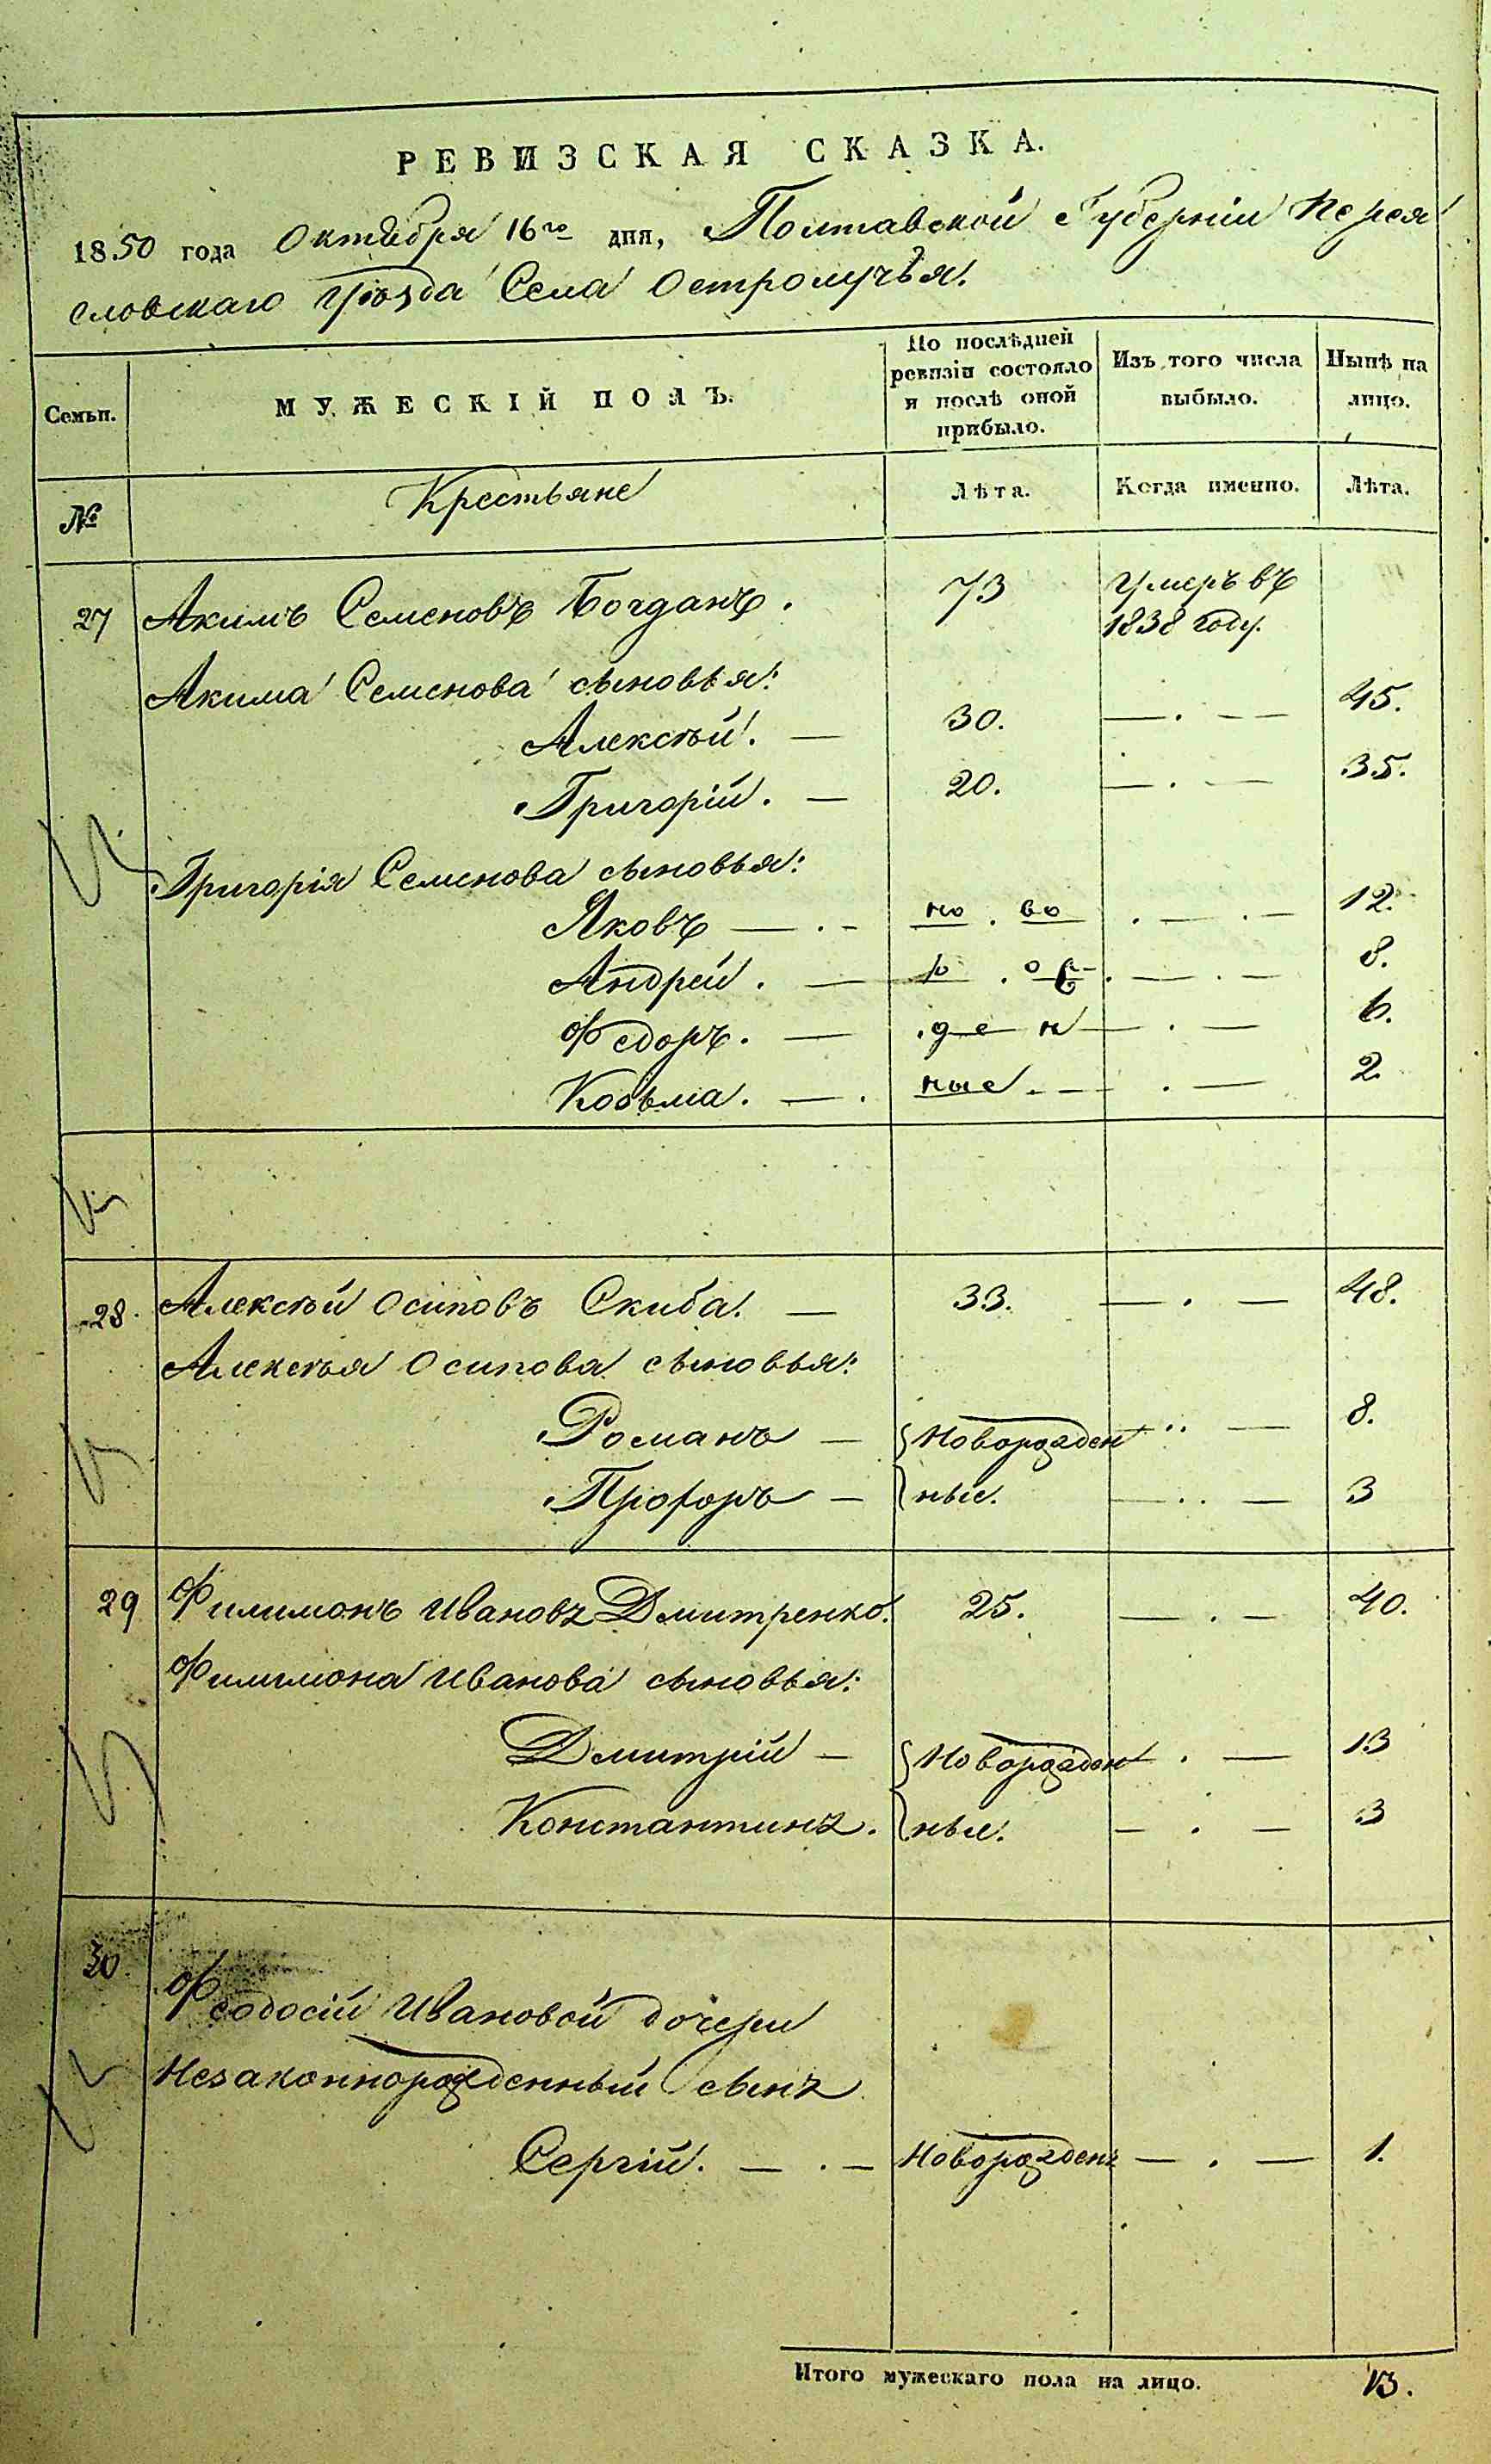 РЕВИЗСКАЯ СКАЗКА.
1850 года Октября 16го дня, Полтавской Губерніи Перея
словскаго Уѣзда Села Остролучья.
Семьи.
МУЖЕСКІЙ ПОЛЪ.
По послѣдней ревизіи состояло и послѣ оной прибыло.
Изъ того числа выбыло.
Нынѣ на лицо.
№
Крестьяне
Лѣта.
Когда именно.
Лѣта.
27 Акимъ Семеновъ Богданъ. 73 Умеръ въ
1838 году.
Акима Семенова сыновья:
Алексѣй. — 30. — . — — 45.
Григорій. — 20. — . — 35.
Григорія Семенова сыновья:
Яковъ — . - но . во . — . — 12.
Андрей. — 8.
Федоръ. — . де н — . — 6.
Козьма. — . ные. — . — 2.
28. Алексѣй Осиповъ Скиба. — 33. — . — 48.
Алексѣя Осипова сыновья:
Романъ — Новорожден — 8.
Прохоръ — ные. — . . — 3
29 Филимонъ Ивановъ Дмитренко. 25. — . — 40.
Филимона Иванова сыновья:
Дмитрій — Новорожден — . — 13
Константинъ. ные. — . — 3
30
Феодосіи Ивановой дочери
Незаконнорожденный сынъ
Сергій. — . — Новорожденъ — . — 1.
Итого мужескаго пола на лицо. 13.